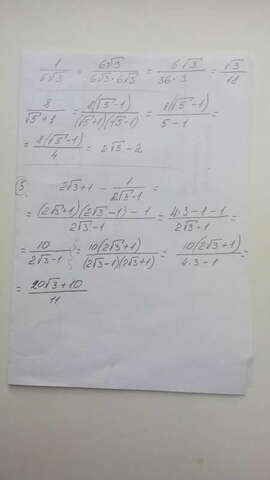 1/(6√3) = 6√3/(6√3·6√3) = 6√3/(36·3) = √3/18
8/(√5+1) = 8(√5-1)/((√5+1)(√5-1)) = 8(√5-1)/(5-1) =
= 8(√5-1)/4 = 2√5-2
5) 2√3+1 - 1/(2√3-1) =
= ((2√3+1)(2√3-1)-1)/(2√3-1) = (4·3-1-1)/(2√3-1) =
= 10/(2√3-1) = 10(2√3+1)/((2√3-1)(2√3+1)) = 10(2√3+1)/(4·3-1) =
= (20√3+10)/11